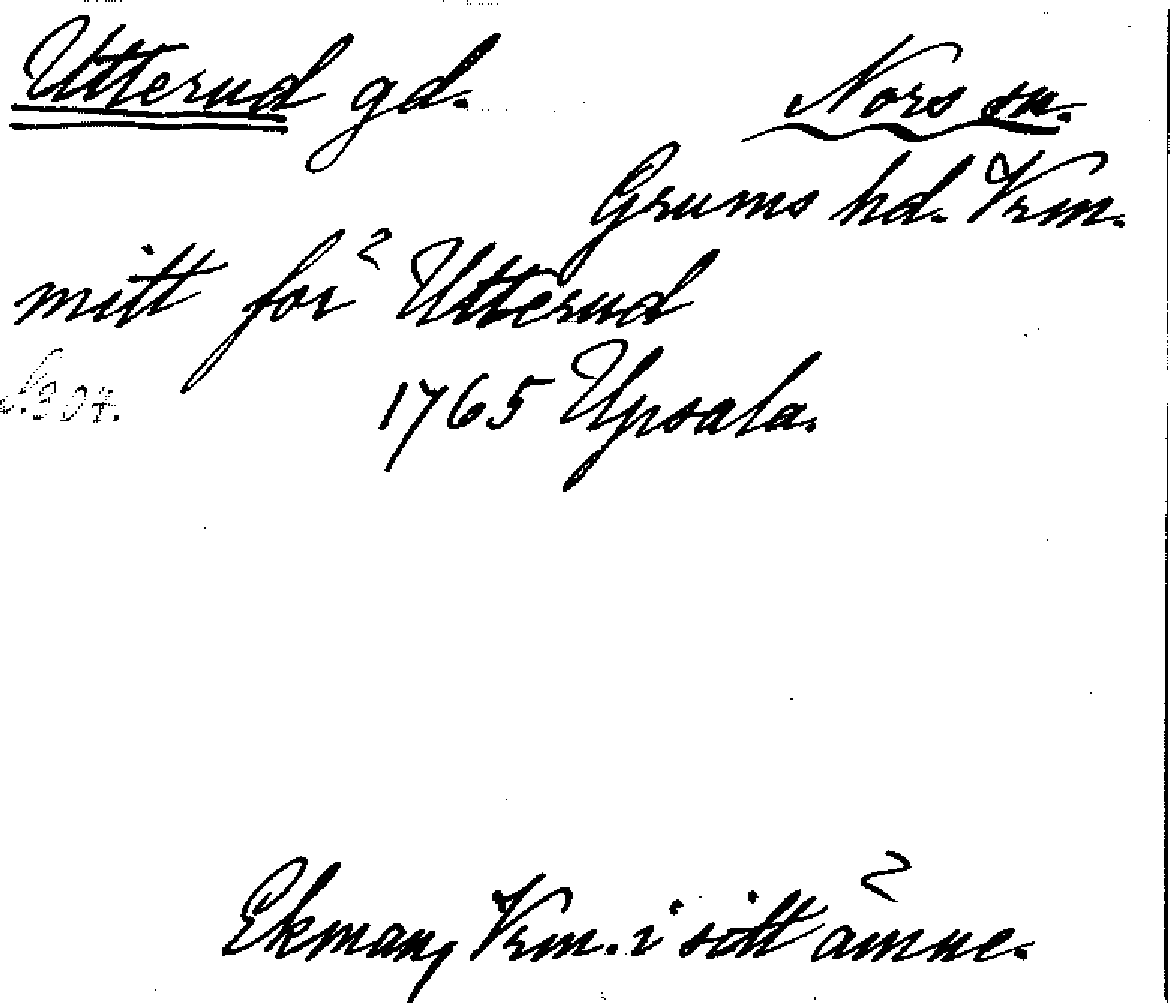 Utterud gd. Nors sn.
Grums hd. Vrm.
mitt för Utterud
s. 304. 1765 Upsala.
Ekman, Vrm. i sitt ämne.